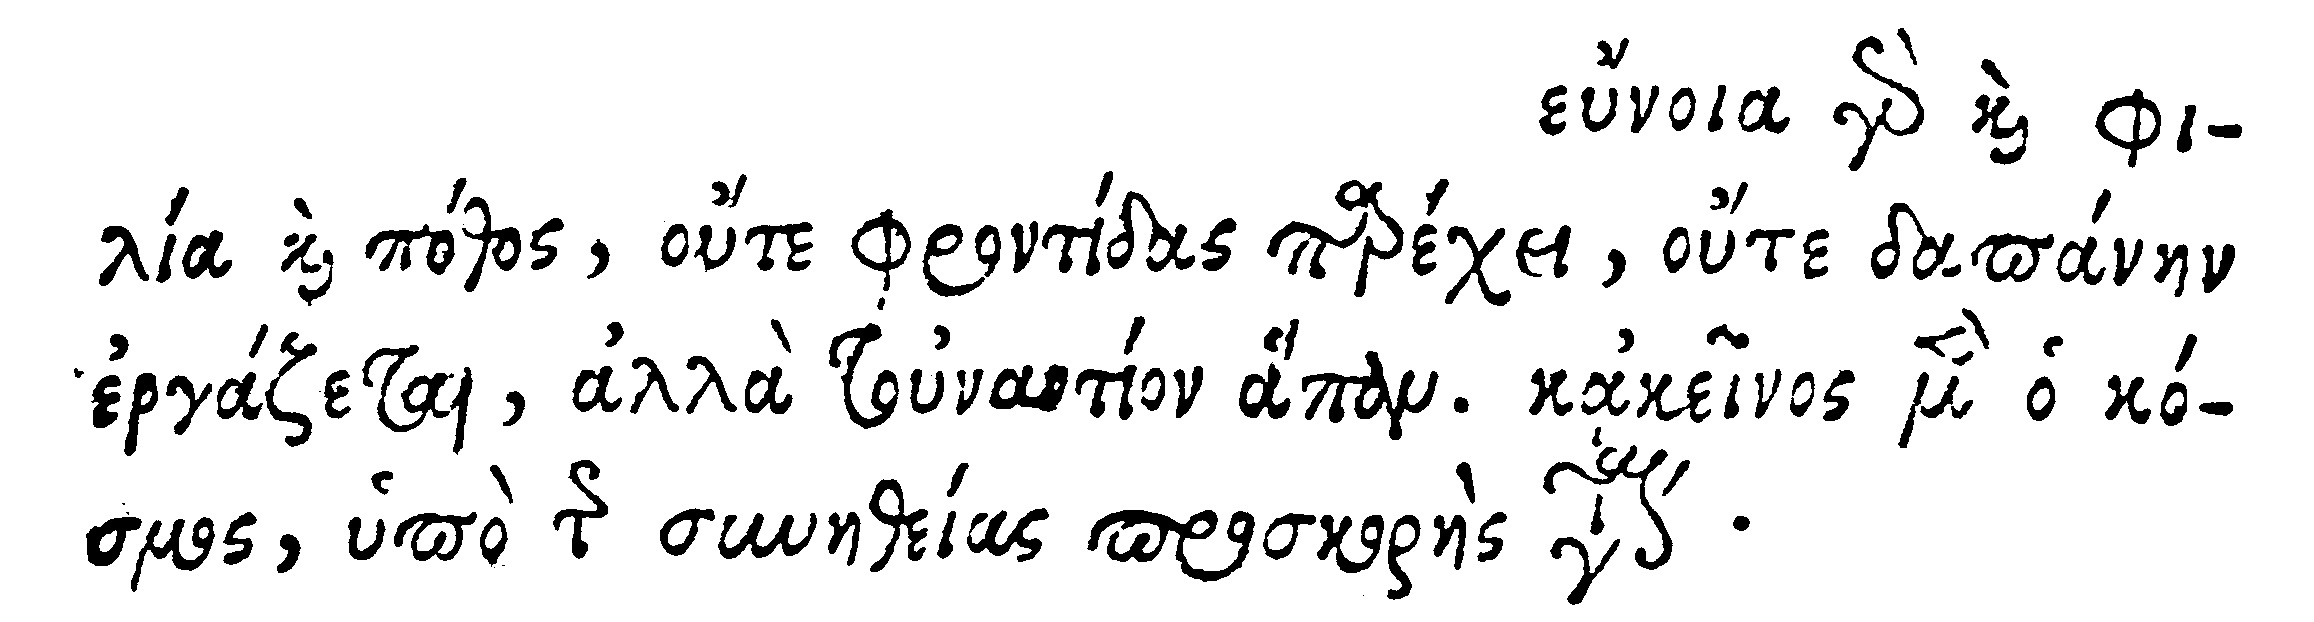 εὔνοια γὰρ καὶ φι-
λία καὶ πόθος, οὔτε φροντίδας παρέχει, οὔτε δαπάνην
ἐργάζεται, ἀλλὰ τοὐναντίον ἅπαν. κἀκεῖνος μὲν ὁ κό-
σμος, ὑπὸ τῆς συνηθείας προσκορὴς